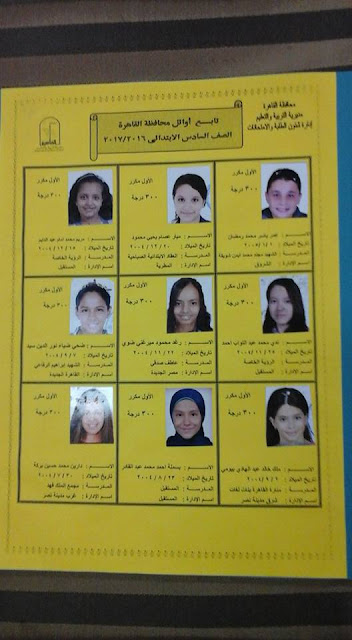 محافظة القاهرة
مديرية التربية والتعليم
إدارة شئون الطلبة والامتحانات
تابع أوائل محافظة القاهرة
الصف السادس الابتدائى ٢٠١٧/٢٠١٦
الأول مكرر
٣٠٠ درجة
الاســـم : عمر ياسر محمد رمضان
تاريخ الميلاد :
المدرسة : الشهيد مجند محمد أيمن شويقة
اسم الإدارة : الشروق
الأول مكرر
٣٠٠ درجة
الاســـم : ميار عصام يحيى محمود
تاريخ الميلاد : ٢٠٠٤/١٢/٢٠
المدرسة : الابتدائية الصباحية
اسم الإدارة : المطرية
الأول مكرر
٣٠٠ درجة
الاســـم : مريم محمد امام عبد الدايم
تاريخ الميلاد : ٢٠٠٤/١٢/١٥
المدرسة : الرؤية الخاصة
اسم الإدارة : المستقبل
الأول مكرر
٣٠٠ درجة
الاســـم : ندى محمد عبد التواب أحمد
تاريخ الميلاد : ٢٠٠٤/١١/٢٨
المدرسة : الرؤية الخاصة
اسم الإدارة : المستقبل
الأول مكرر
٣٠٠ درجة
الاســـم : رغد محمود ميرغني ضوي
تاريخ الميلاد : ٢٠٠٤/١١/٢٢
المدرسة : عاطف صدقي
اسم الإدارة : مصر الجديدة
الأول مكرر
٣٠٠ درجة
الاســـم : ضحى ضياء نور الدين سيد
تاريخ الميلاد : ٢٠٠٤/٩/٧
المدرسة : الشهيد إبراهيم الرفاعي
اسم الإدارة : القاهرة الجديدة
الأول مكرر
٣٠٠ درجة
الاســـم : ملك خالد عبد الهادي بيومي
تاريخ الميلاد : ٢٠٠٤/٩/٢
المدرسة : منارة القاهرة بنات لغات
اسم الإدارة : شرق مدينة نصر
الأول مكرر
٣٠٠ درجة
الاســـم : بسملة احمد محمد عبد القادر
تاريخ الميلاد : ٢٠٠٤/٨/٢٣
المدرسة : المستقبل
اسم الإدارة : المستقبل
الأول مكرر
٣٠٠ درجة
الاســـم : دارين محمد حسين بركة
تاريخ الميلاد : ٢٠٠٤/٧/٣٠
المدرسة : مجمع الملك فهد
اسم الإدارة : غرب مدينة نصر